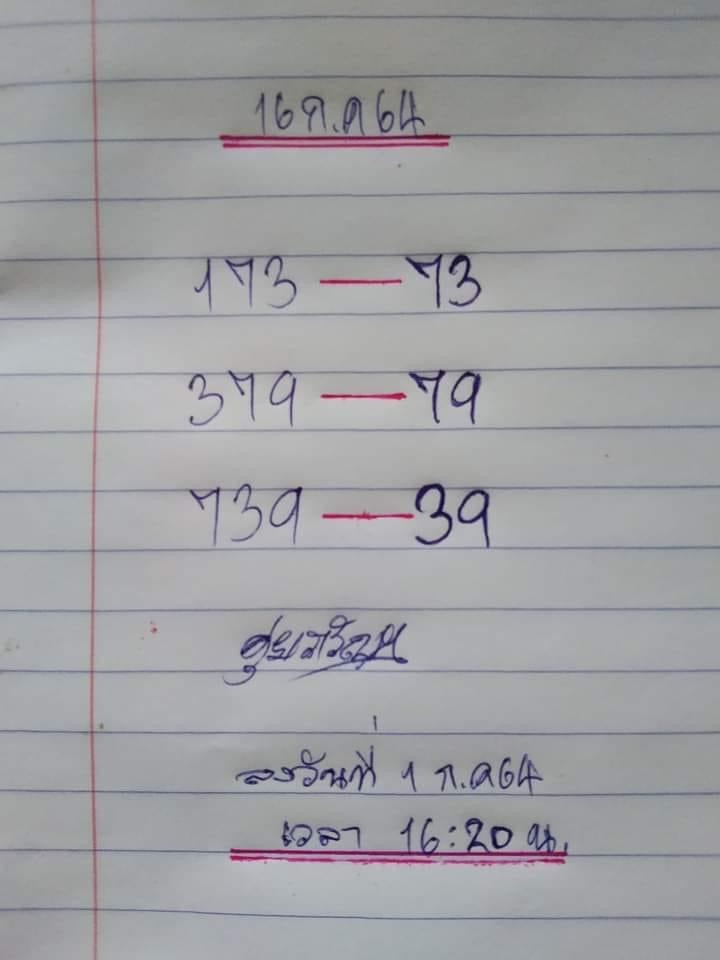 16 ก.ค 64
173 — 73
379 — 79
739 — 39
ลงวันที่ 1 ก.ค 64
เวลา 16:20 น.